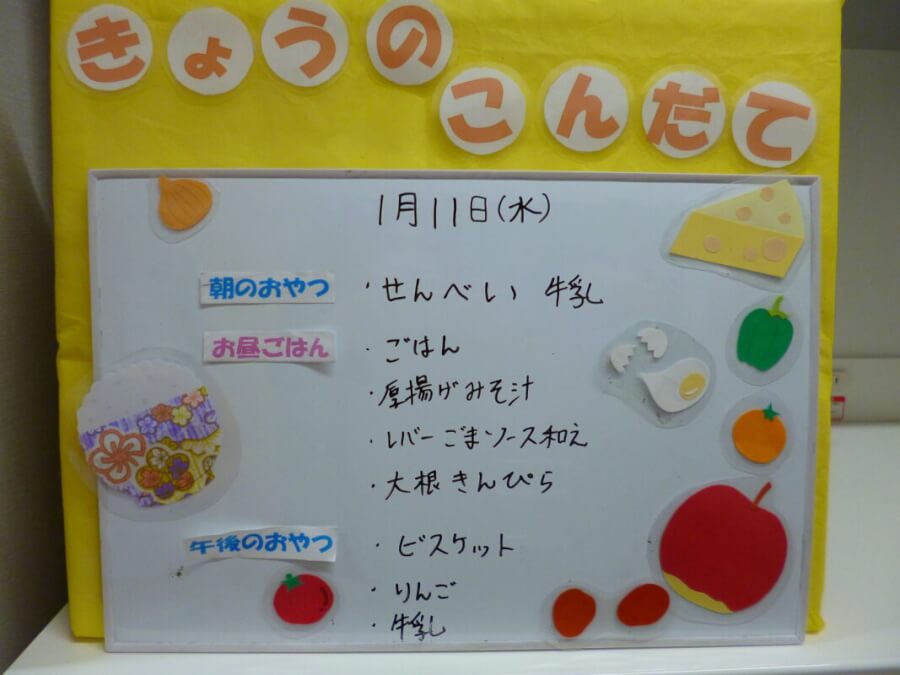 きょうの
こんだて
1月11日(水)
朝のおやつ ・せんべい 牛乳
お昼ごはん ・ごはん
・厚揚げみそ汁
・レバーごまソース和え
・大根きんぴら
午後のおやつ ・ビスケット
・りんご
・牛乳